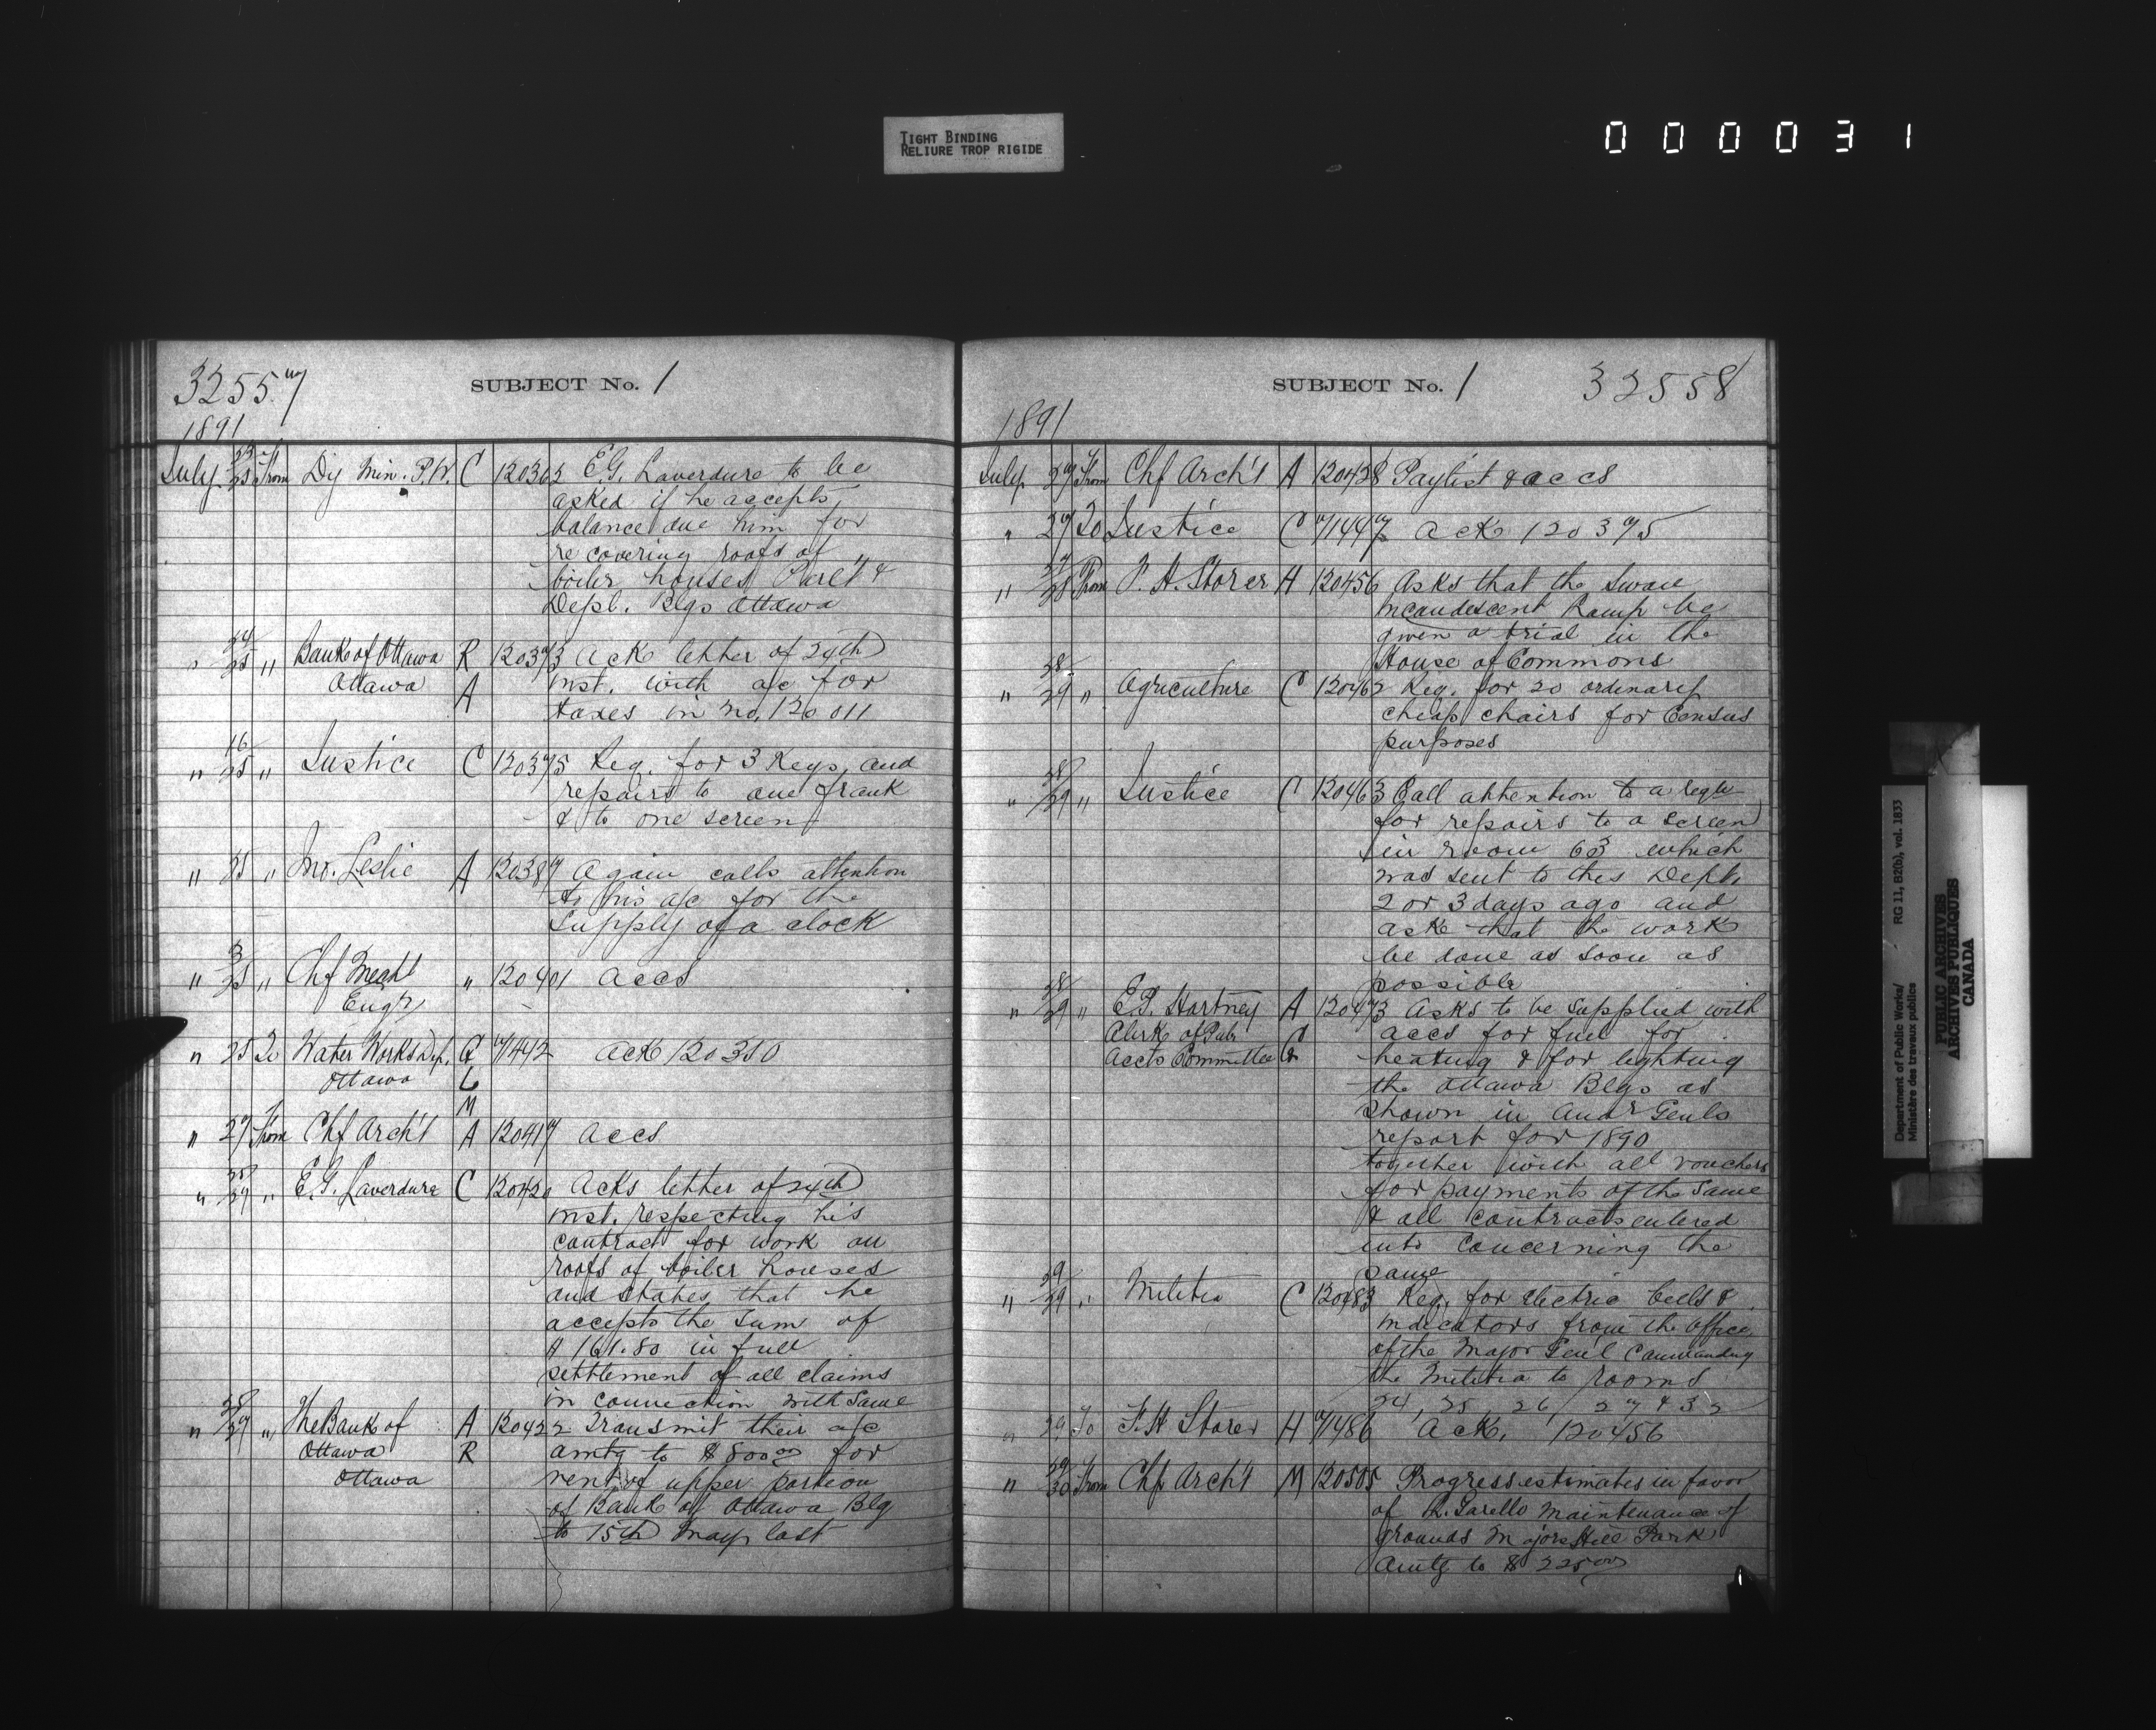 TIGHT BINDING
RELIURE TROP RIGIDE
000031
32557
SUBJECT No. 1
1891
July 23/25 From Dy Min. P.W. C 120362 E.G. Laverdure to be
asked if he accepts
balance due him for
recovering roofs of
boiler houses Parlt &
Depl. Blgs Ottawa
" 24/25 " Bank of Ottawa R 120373 Ack letter of 24th
Ottawa A inst. with a/c for
taxes in no. 120011
" 16/25 " Justice C 120375 Req. for 3 Keys, and
repairs to one frank
& to one screen
" 25 " Jno. Leslie A 120387 Again calls attention
to his a/c for the
supply of a clock
" 3/25 " Chf Mechl " 120401 accs
Engr
" 25 To Water Works Dep. G 71442 ack 120350
Ottawa L
M
" 27 From Chf Arch't A 120417 accs
" 25/27 " E.G. Laverdure C 120420 Acks letter of 24th
inst. respecting his
contract for work on
roofs of boiler houses
and states that he
accepts the sum of
$ 161.80 in full
settlement of all claims
in connection with same
" 25/27 " The Bank of A 120422 Transmit their a/c
Ottawa R amtg to $800 00 for
Ottawa rent of upper portion
of Bank of Ottawa Blg
to 15th May last
SUBJECT No. 1
32558
1891
July 27 From Chf Arch't A 120428 Paylist & accs
" 27 To Justice C 71447 ack 120375
" 27/28 From F. H. Storer H 120456 Asks that the Swan
incandescent Lamp be
given a trial in the
House of Commons
" 28/29 " Agriculture C 120462 Req. for 20 ordinary
cheap chairs for Census
purposes
" 28/29 " Justice C 120463 Call attention to a reqn
for repairs to a screen
in room 63 which
was sent to this Dept.
2 or 3 days ago and
ask that the work
be done as soon as
possible
" 28/29 " E.P. Hartney A 120473 Asks to be supplied with
Clerk of Pub C accs for fuel for
Accts Committee G heating & for lighting
the Ottawa Blgs as
shown in Audr Genls
report for 1890
together with all vouchers
for payments of the same
& all contracts entered
into concerning the
same
" 29/29 " Militia C 120483 Req. for electric bells &
indicators from the office
of the Major Genl Commanding
the Militia to rooms
24, 25, 26, 27 & 32
" 29 To F. H Storer H 71486 ack. 120456
" 29/30 From Chf Arch't M 120505 Progress estimates in favor
of Maintenance of
grounds Majors Hill Park
amtg to $ 225 00
Department of Public Works/ RG 11, B2(b), vol. 1833
Ministère des travaux publics
PUBLIC ARCHIVES
ARCHIVES PUBLIQUES
CANADA